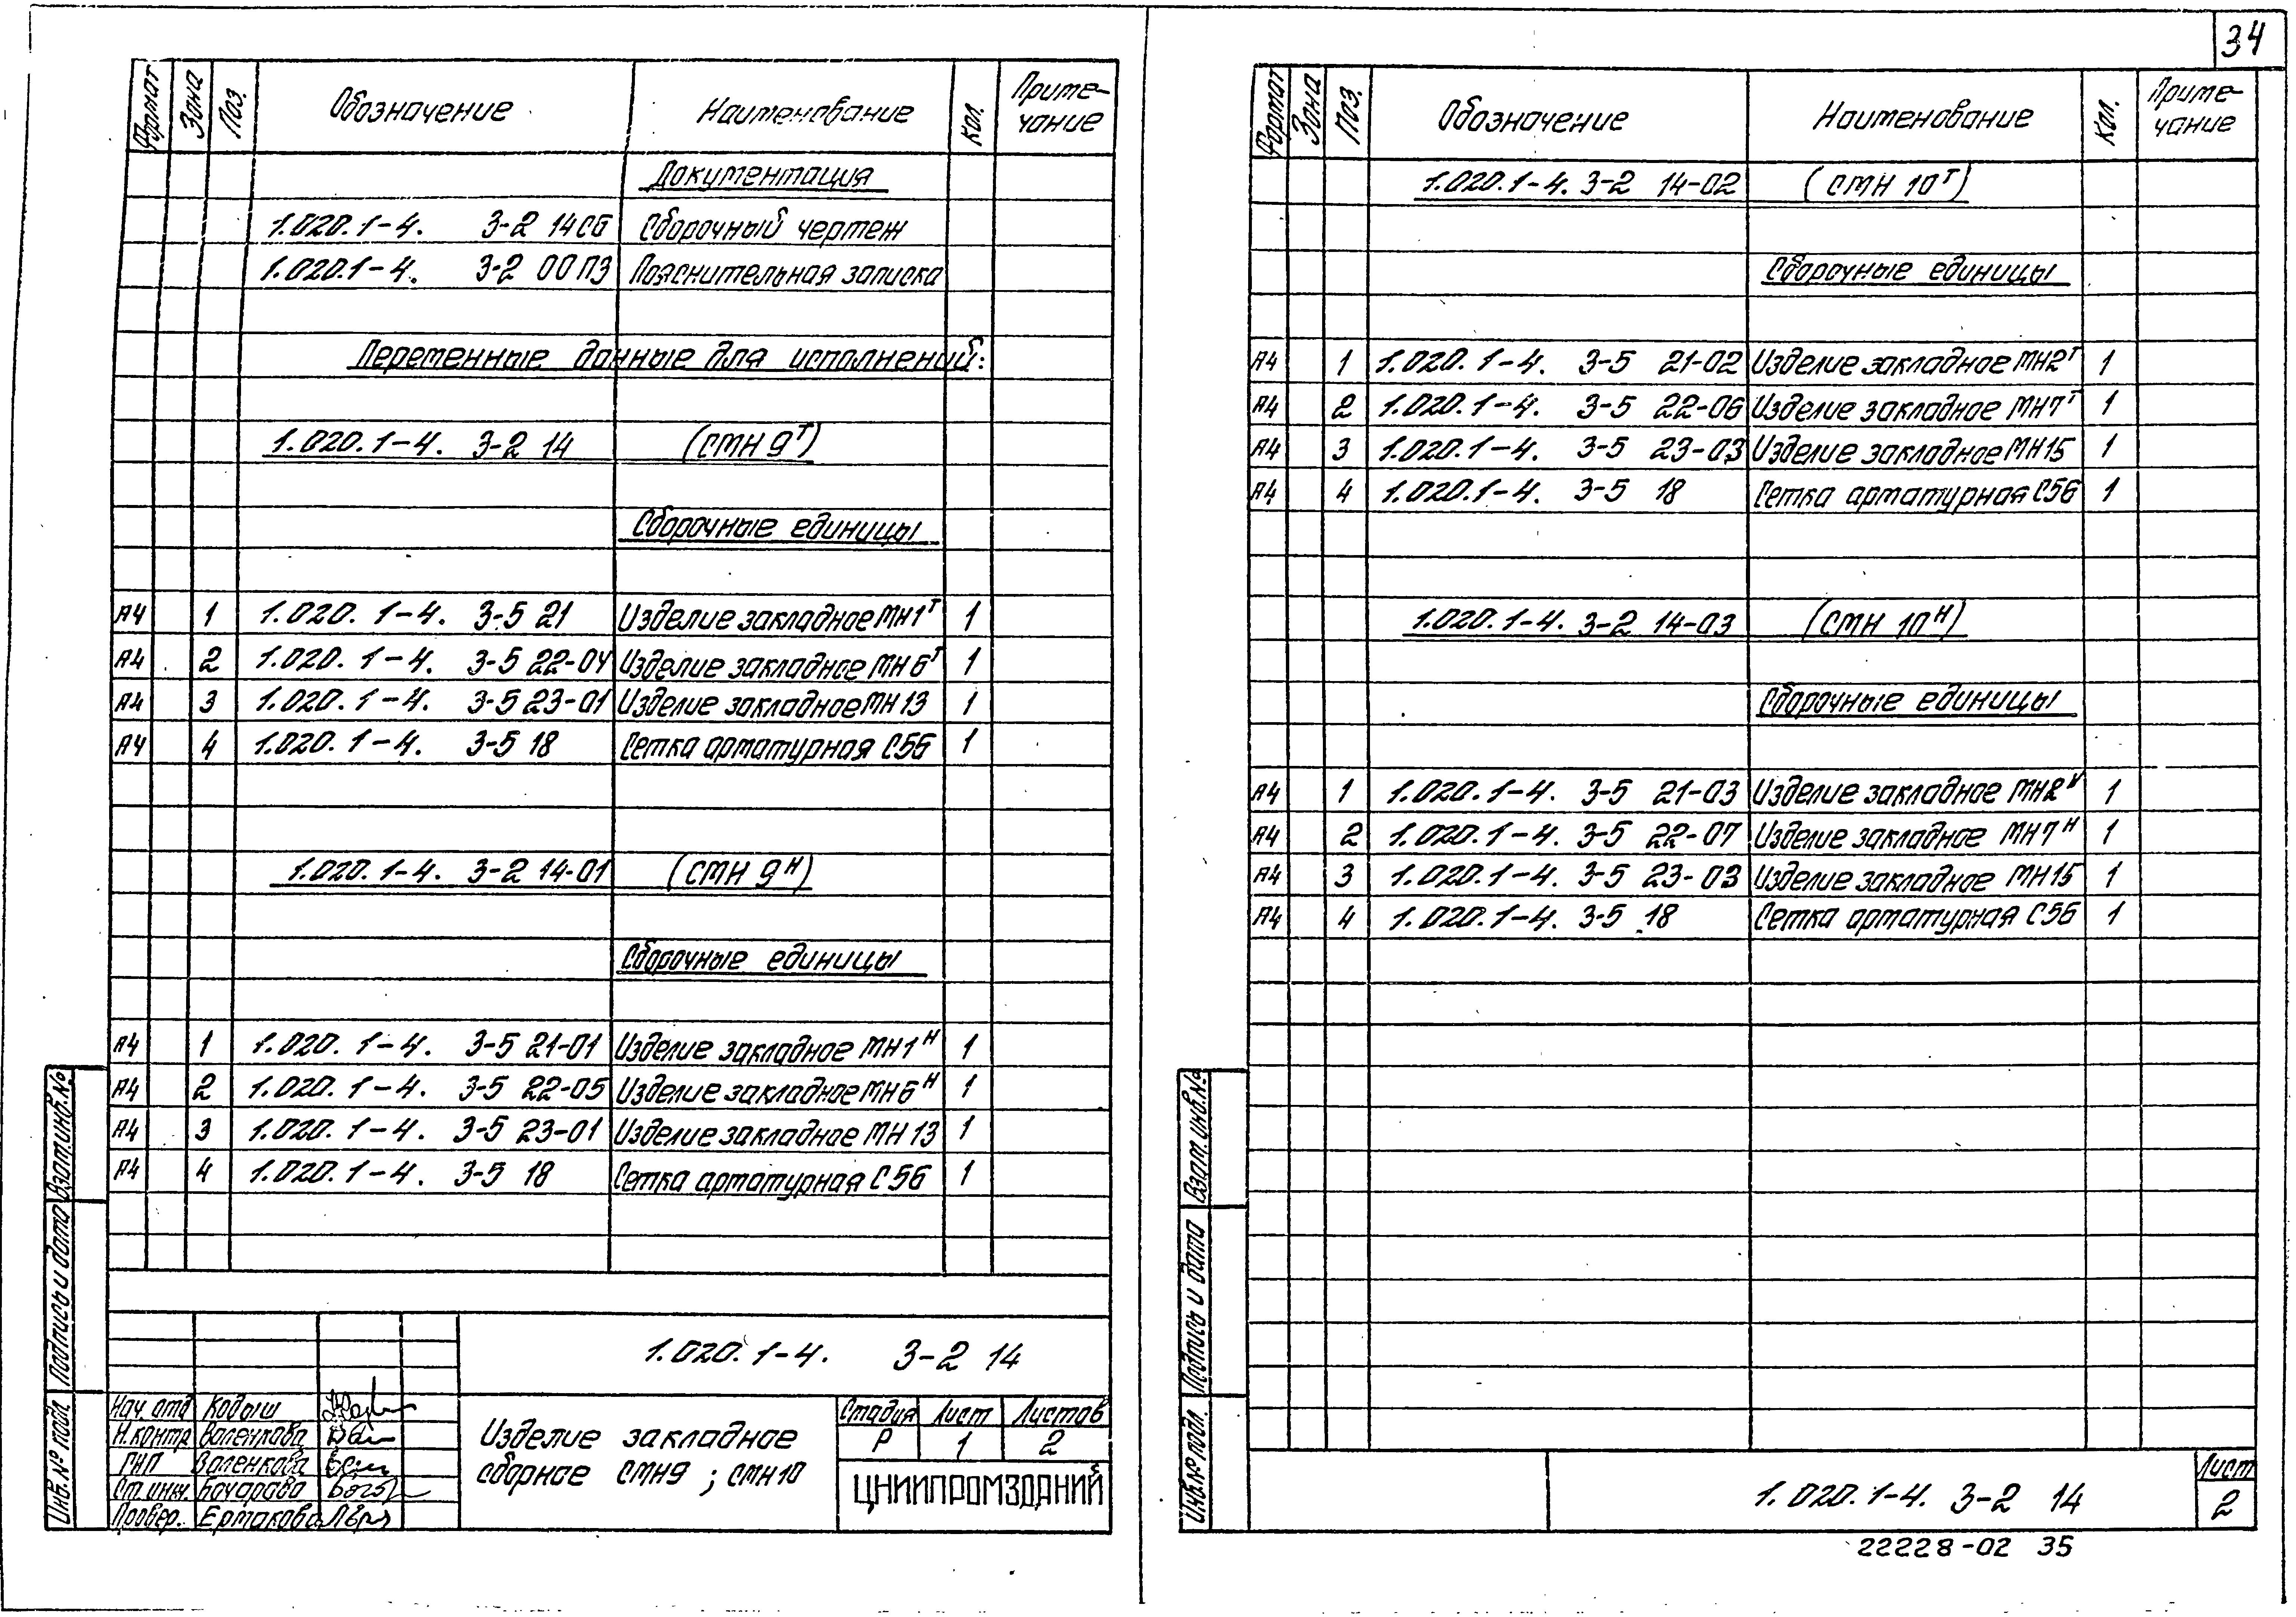 34
Формат Зона Поз. Обозначение Наименование Кол. Приме-
чание
Документация
1.020.1-4. 3-2 14СБ Сборочный чертеж
1.020.1-4. 3-2 00ПЗ Пояснительная записка
Переменные данные для исполнений:
1.020.1-4. 3-2 14 (СМН 9ᵀ)
Сборочные единицы
А4 1 1.020.1-4. 3-5 21 Изделие закладное МН1ᵀ 1
А4 2 1.020.1-4. 3-5 22-04 Изделие закладное МН6ᵀ 1
А4 3 1.020.1-4. 3-5 23-01 Изделие закладное МН13 1
А4 4 1.020.1-4. 3-5 18 Сетка арматурная С56 1
1.020.1-4. 3-2 14-01 (СМН 9ᴴ)
Сборочные единицы
А4 1 1.020.1-4. 3-5 21-01 Изделие закладное МН1ᴴ 1
А4 2 1.020.1-4. 3-5 22-05 Изделие закладное МН6ᴴ 1
А4 3 1.020.1-4. 3-5 23-01 Изделие закладное МН13 1
А4 4 1.020.1-4. 3-5 18 Сетка арматурная С56 1
Инв.№ подл. Подпись и дата Взам.инв.№
1.020.1-4. 3-2 14
Нач. отд Кодыш
Н.контр Валенкова
ГИП Валенкова
Ст.инж. Бочарова
Провер. Ермакова
Изделие закладное
сборное СМН9; СМН10
Стадия Лист Листов
Р 1 2
ЦНИИПРОМЗДАНИЙ
Формат Зона Поз. Обозначение Наименование Кол. Приме-
чание
1.020.1-4. 3-2 14-02 (СМН 10ᵀ)
Сборочные единицы
А4 1 1.020.1-4. 3-5 21-02 Изделие закладное МН2ᵀ 1
А4 2 1.020.1-4. 3-5 22-06 Изделие закладное МН7ᵀ 1
А4 3 1.020.1-4. 3-5 23-03 Изделие закладное МН15 1
А4 4 1.020.1-4. 3-5 18 Сетка арматурная С56 1
1.020.1-4. 3-2 14-03 (СМН 10ᴴ)
Сборочные единицы
А4 1 1.020.1-4. 3-5 21-03 Изделие закладное МН2ᴴ 1
А4 2 1.020.1-4. 3-5 22-07 Изделие закладное МН7ᴴ 1
А4 3 1.020.1-4. 3-5 23-03 Изделие закладное МН15 1
А4 4 1.020.1-4. 3-5 18 Сетка арматурная С56 1
Инв.№ подл. Подпись и дата Взам.инв.№
1.020.1-4. 3-2 14
Лист
2
22228-02 35